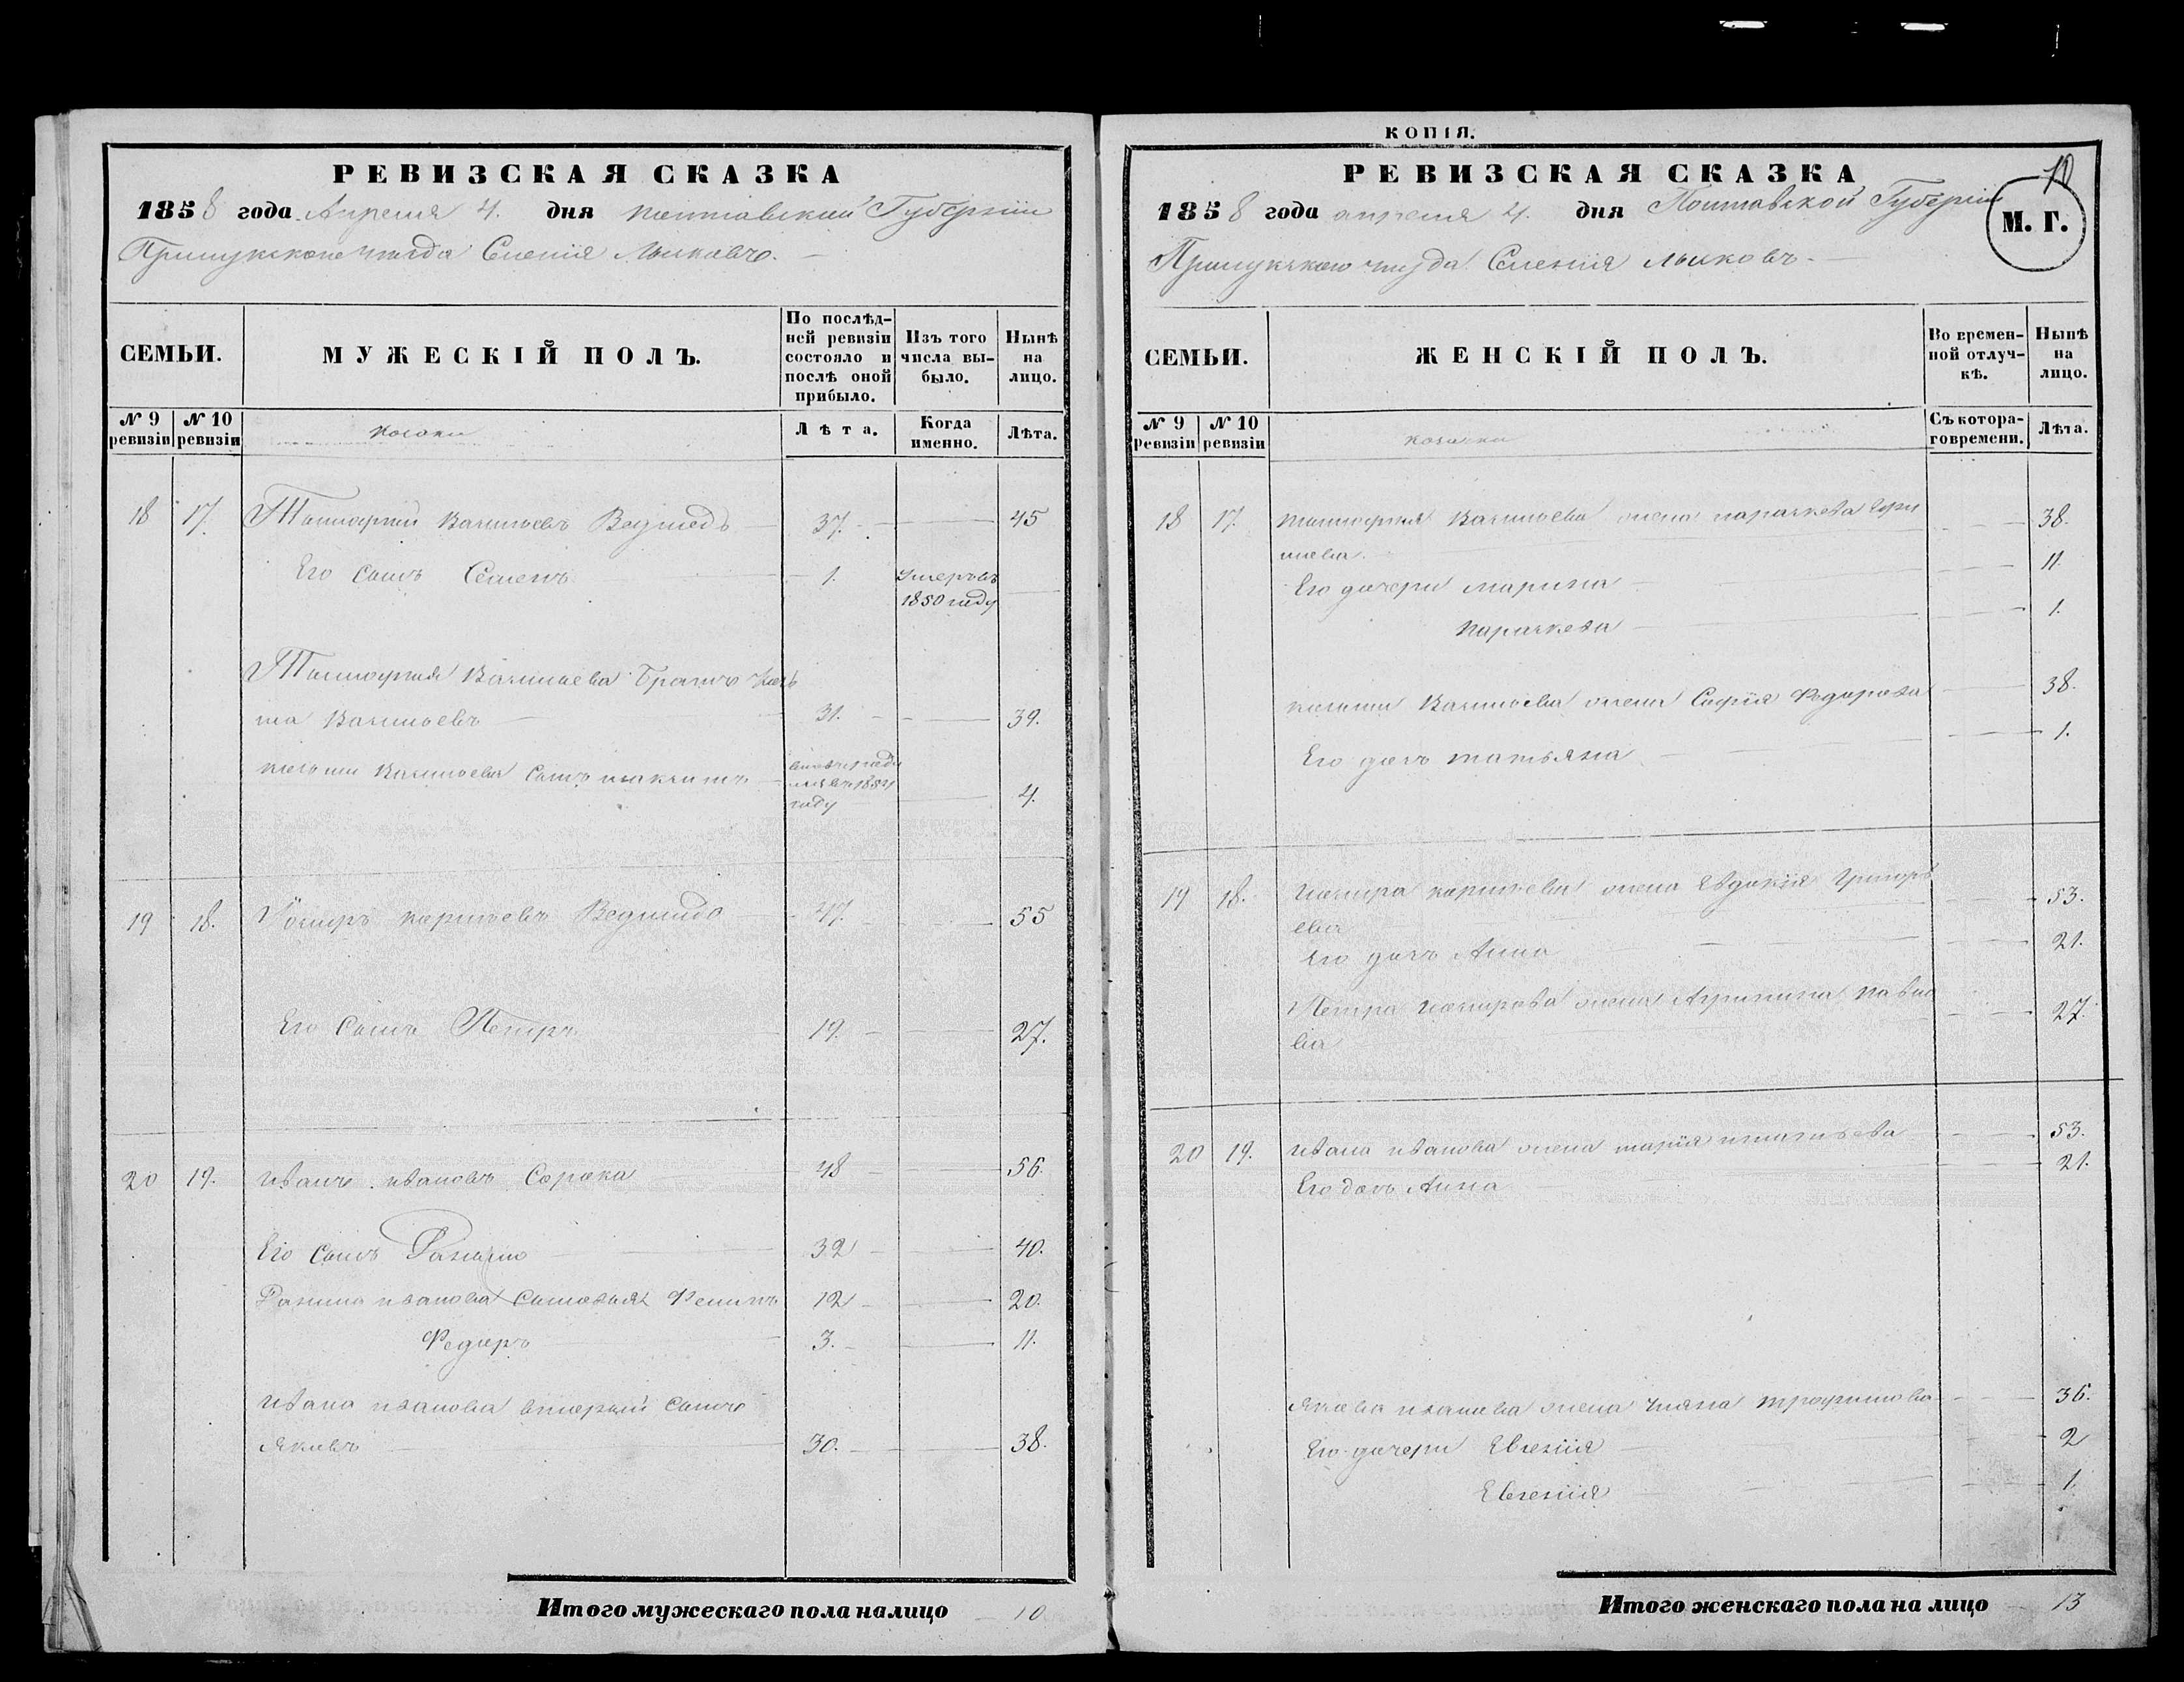 РЕВИЗСКАЯ СКАЗКА
1858 года Апреля 4. дня Полтавской Губернии
Прилукского уезда Селения Лысковъ.
СЕМЬИ.
МУЖЕСКІЙ ПОЛЪ.
По послѣд-
ней ревизіи
состояло и
послѣ оной
прибыло.
Изъ того
числа вы-
было.
Нынѣ
на
лицо.
№ 9
ревизіи
№ 10
ревизіи
козаки
Лѣта.
Когда
именно.
Лѣта.
18 17. Тимофей Васильевъ Ведмедь 37. 45
Его сынъ Семенъ 1. умеръ въ
1850 году
Тимофея Васильева братъ
Васильевъ 31. 39.
Васильева сынъ Максимъ
въ 1854
году 4.
19 18. Ведмедь 47. 55
Его сынъ Петръ 19. 27.
20 19. Иванъ Ивановъ Сорока 48 56.
Его сынъ Данило 32 40.
Данила Иванова сыновья Филипъ 12 20.
Федоръ 3. 11.
Ивана Иванова вторый сынъ
Яковъ 30. 38.
Итого мужескаго пола налицо 10
КОПІЯ.
РЕВИЗСКАЯ СКАЗКА
10
1858 года апреля 4. дня Полтавской Губернии
М. Г.
Прилукского уезда Селения Лысковъ.
СЕМЬИ.
ЖЕНСКІЙ ПОЛЪ.
Во времен-
ной отлуч-
кѣ.
Нынѣ
на
лицо.
№ 9
ревизіи
№ 10
ревизіи
козачки
Съ котора-
го времени.
Лѣта.
18 17. Тимофея Васильева жена Параскева 38.
Его дочери Марина 11.
Параскева 1.
Васильева жена Софія Федорова 38.
Его дочь Татьяна 1.
19 18. жена Евдокія Григорь
ева 53.
Его дочь Анна 21.
Петра жена Агрипина Павло
ва 27.
20 19. Ивана Иванова жена Марія Игнатьева 53.
Его дочь Анна 21.
Якова Иванова жена Уляна Трофимова 36.
Его дочери Евгенія 2
Евгенія 1.
Итого женскаго пола на лицо 13